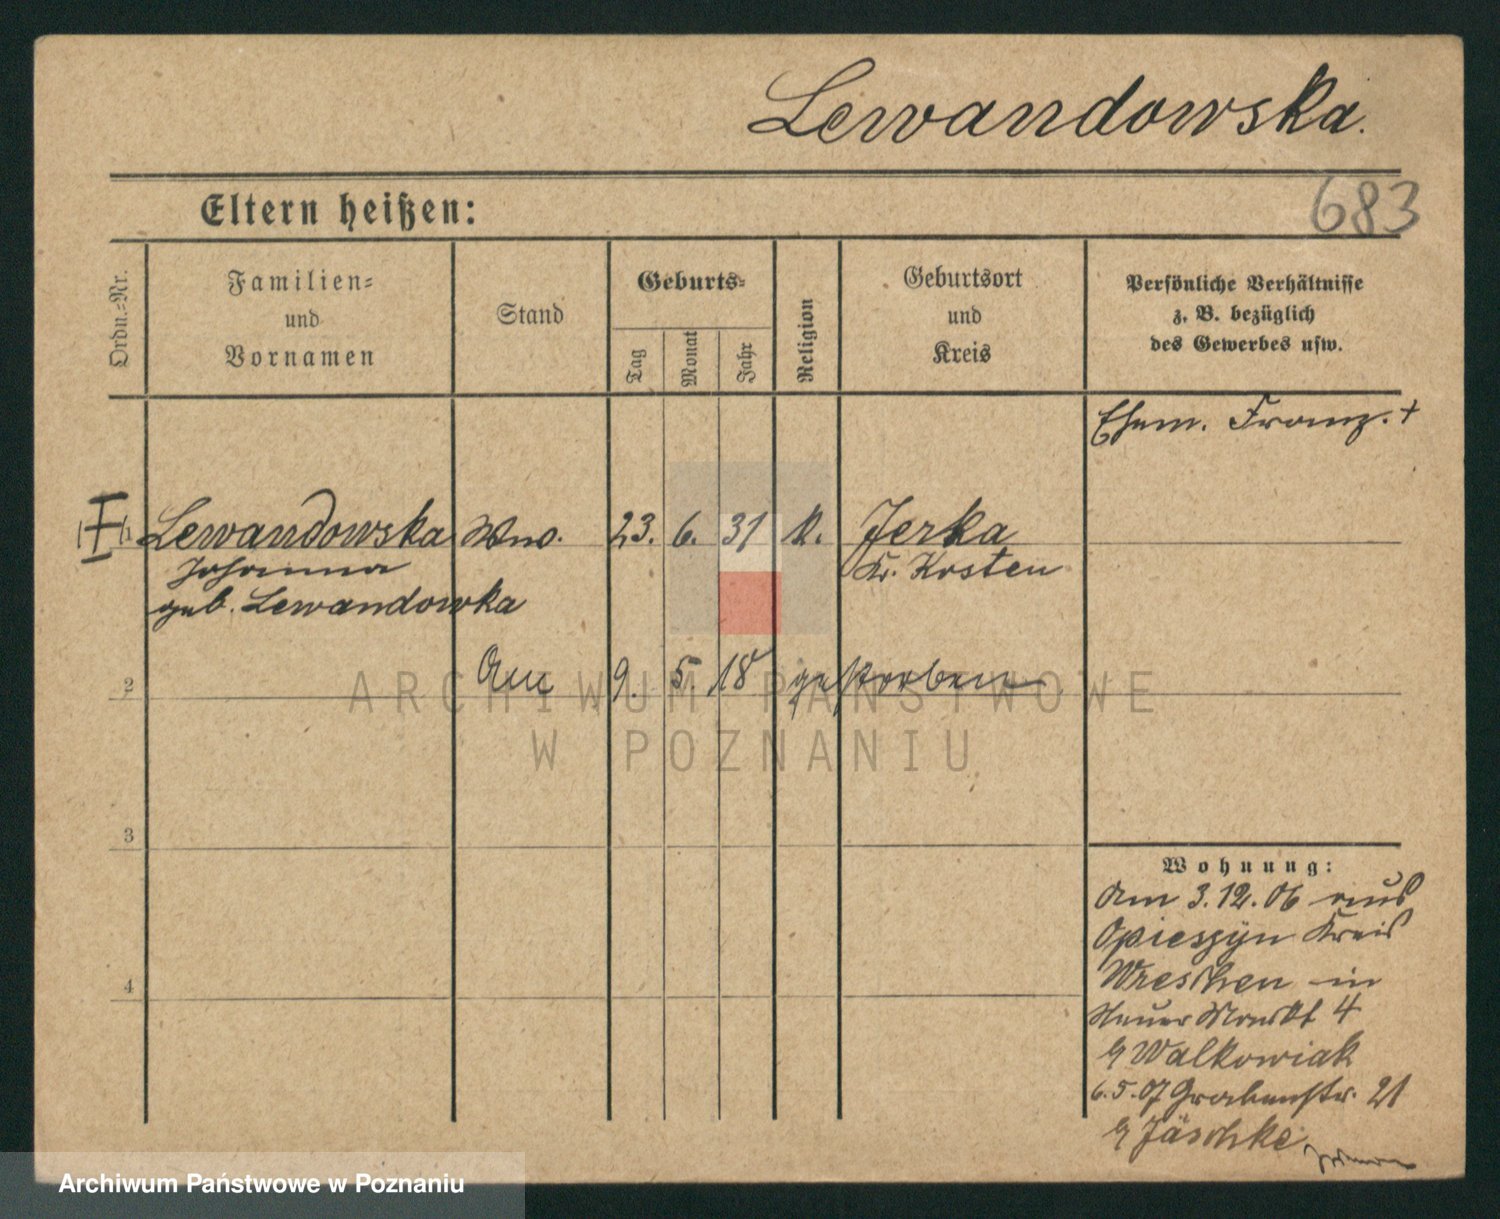 Lewandowska.
683
Eltern heißen:
Ordn.-Nr.
Familien-
und
Vornamen
Stand
Geburts-
Tag
Monat
Jahr
Religion
Geburtsort
und
Kreis
Persönliche Verhältnisse
z. B. bezüglich
des Gewerbes usw.
Ehem. Franz. +
I Lewandowska Wwe. 23. 6. 31 K. Jerka
Johanna Kr. Kosten
geb. Lewandowka
Am 9. 5. 18 gestorben
2
3
4
Wohnung:
Am 3.12.06 aus
Opieszyn Kreis
Wreschen in
Neuer Markt 4
Walkowiak
6.5.07 Grabenstr. 21
Jäschke
ARCHIWUM PAŃSTWOWE
W POZNANIU
Archiwum Państwowe w Poznaniu